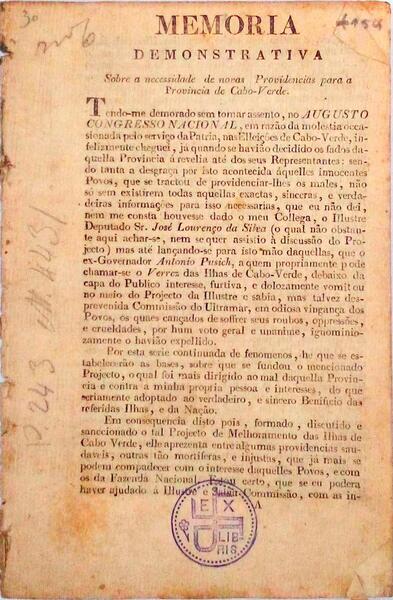 30
4154
MEMORIA
DEMONSTRATIVA
Sobre a necessidade de novas Providencias para a
Provincia de Cabo-Verde.
Tendo-me demorado sem tomar assento, no AUGUSTO
CONGRESSO NACIONAL, em razão da molestia occa-
sionada pelo serviço da Patria, nas Elleições de Cabo-Verde, in-
felizmente cheguei, já quando se havião decidido os fados da-
quella Provincia á revelia até dos seus Representantes: sen-
do tanta a desgraça por isto acontecida áquelles innocentes
Povos, que se tractou de providenciar-lhes os males, não
só sem existirem todas aquellas exactas, sinceras, e verda-
deiras informações para isso necessarias, que eu não dei,
nem me consta houvesse dado o meu Collega, o Illustre
Deputado Sr. José Lourenço da Silva (o qual não obstan-
te aqui achar-se, nem se quer assistio á discussão do Pro-
jecto) mas até lançando-se para isto mão daquellas, que o
ex-Governador Antonio Pusich, a quem propriamente pode
chamar-se o Verres das Ilhas de Cabo-Verde, debaixo da
capa do Publico interesse, furtiva, e dolozamente vomitou
no meio do Projecto da Illustre e sabia, mas talvez des-
prevenida Commissão do Ultramar, em odiosa vingança dos
Povos, os quaes cançados de soffrer seus roubos, oppressões,
e crueldades, por hum voto geral e unanime, ignominio-
zamente o havião expellido.
Por esta serie continuada de fenomenos, he que se es-
tabelecerão as bases, sobre que se fundou o mencionado
Projecto, o qual foi mais dirigido ao mal daquella Provin-
cia e contra a minha propria pessoa e interesses, do que
seriamente adoptado ao verdadeiro, e sincero Beneficio das
referidas Ilhas, e da Nação.
Em consequencia disto pois, formado, discutido e
sanccionado o tal Projecto de Melhoramento das Ilhas de
Cabo Verde, elle aprezenta entre algumas providencias sau-
daveis, outras tão mortiferas, e injustas, que já mais se
podem compadecer com o interesse daquelles Povos, e com
os da Fazenda Nacional. Estou certo, que se eu podera
haver ajudado á Illustre e Sabia Commissão, com as in-
A
EX
LIB
RIS
P.243